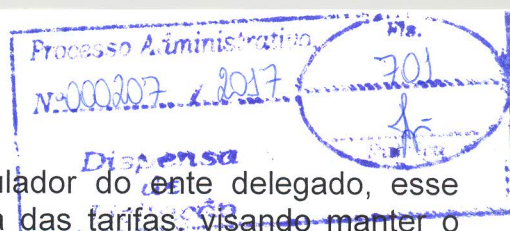 Processo Administrativo
Nº 000207 / 2017
Fls.
701
Dispensa
de
Licitação
ulador do ente delegado, esse
a das tarifas, visando manter o